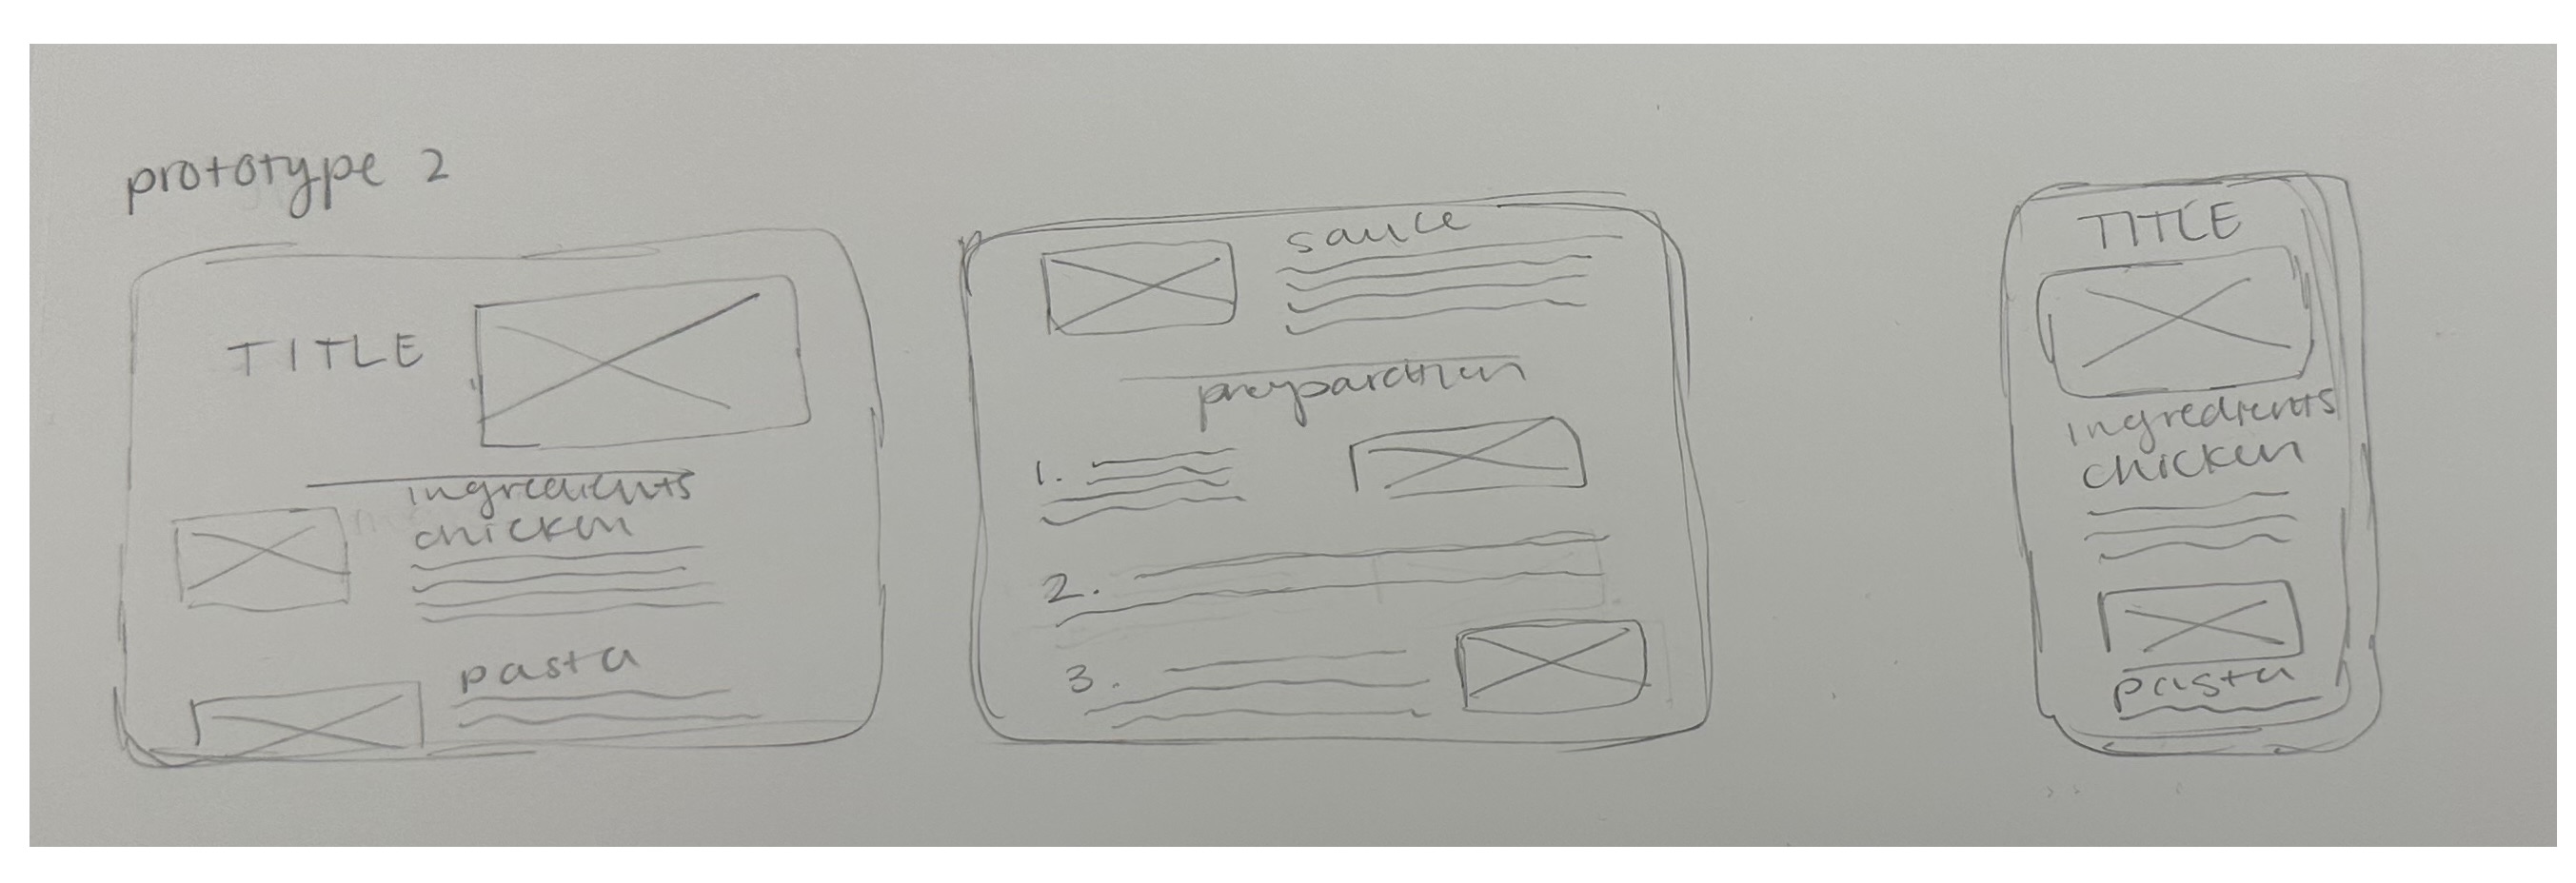 prototype 2
TITLE
ingredients
chicken
pasta
sauce
preparation
1.
2.
3.
TITLE
ingredients
chicken
pasta